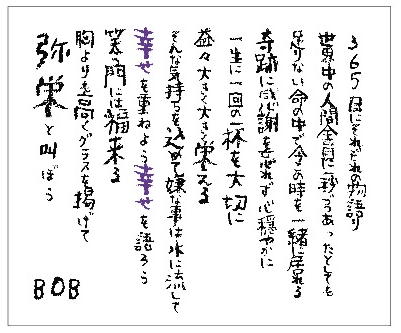 365日にそれぞれの物語り
世界中の人間全員に一秒づつあったとしても
足りない命の中で今この時を一緒に居れる
奇跡に感謝を忘れず心穏やかに
一生に一回の一杯を大切に
益々大きく大きく栄える
そんな気持ちを込めて嫌な事は水に流して
幸せを重ねよう幸せを語ろう
笑う門には福来る
胸よりも高くグラスを揚げて
弥栄と叫ぼう
BOB